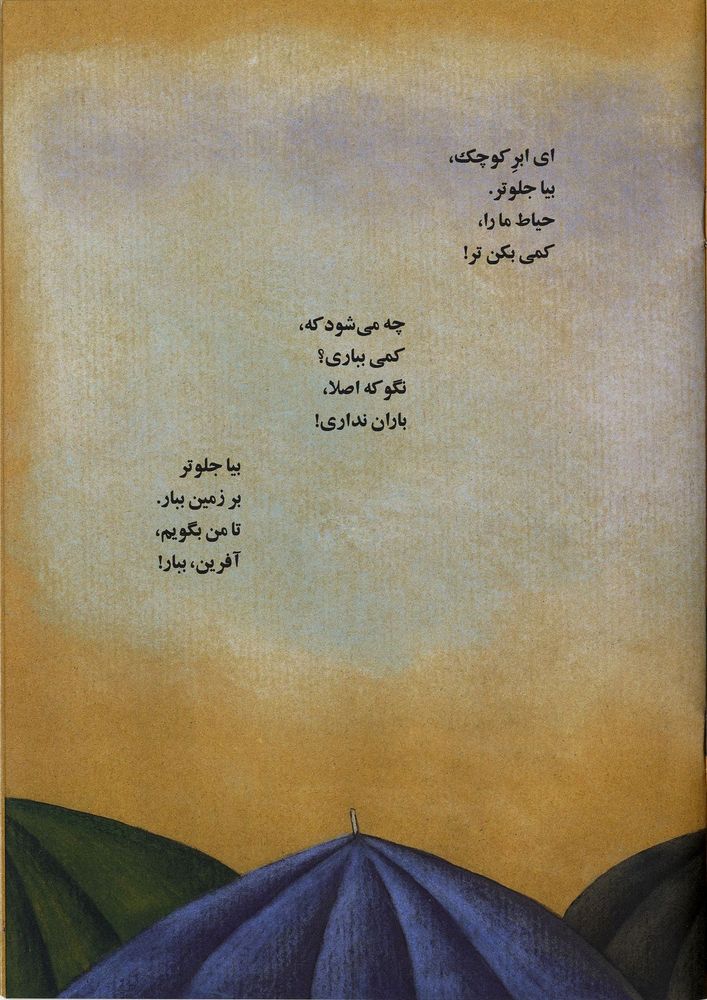 ای ابرِ کوچک،
بیا جلوتر.
حیاط ما را،
کمی بکن تر!
چه می‌شود که،
کمی بباری؟
نگو که اصلا،
باران نداری!
بیا جلوتر
بر زمین ببار.
تا من بگویم،
آفرین، ببار!